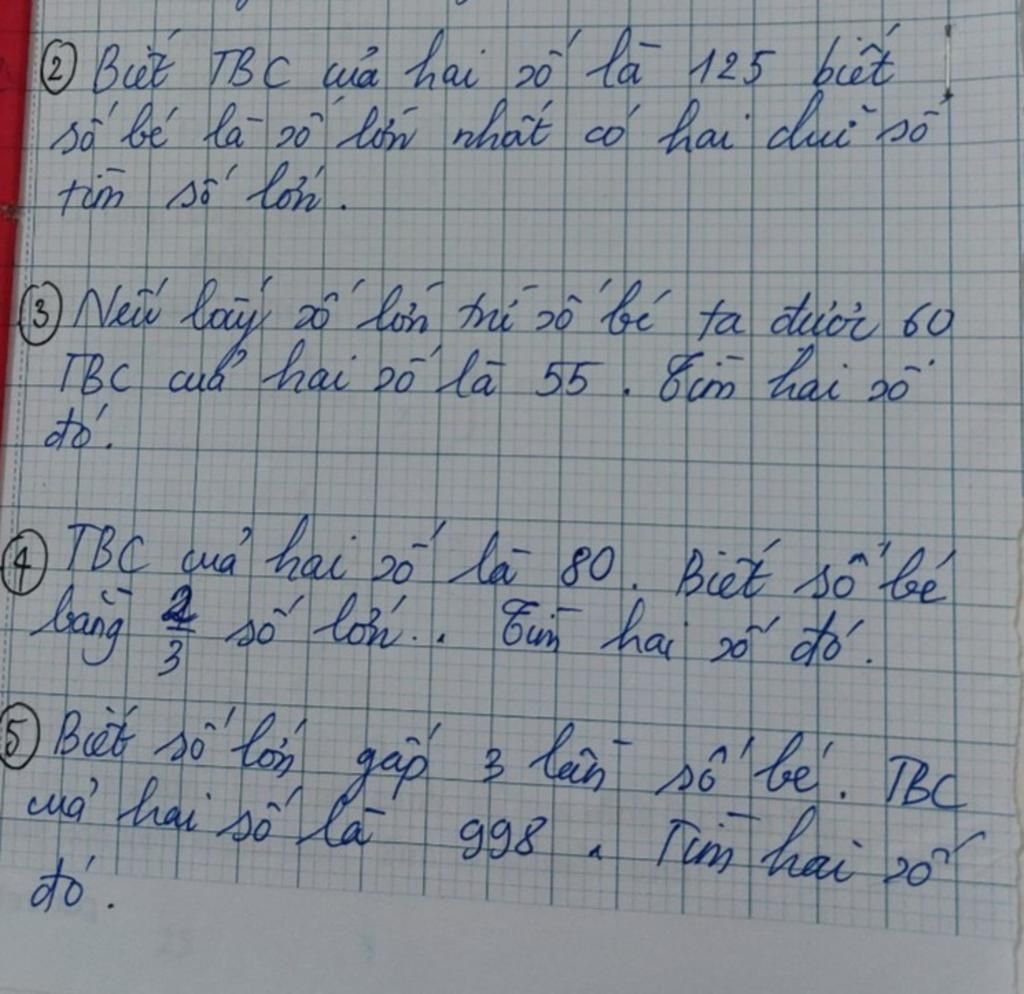 ② Biết TBC của hai số là 125 biết
số bé là số lớn nhất có hai chữ số
tìm số lớn.
③ Nếu lấy số lớn trừ số bé ta được 60
TBC của hai số là 55. Tìm hai số
đó.
④ TBC của hai số là 80. Biết số bé
bằng 2/3 số lớn.. Tìm hai số đó.
⑤ Biết số lớn gấp 3 lần số bé. TBC
của hai số là 998. Tìm hai số
đó.